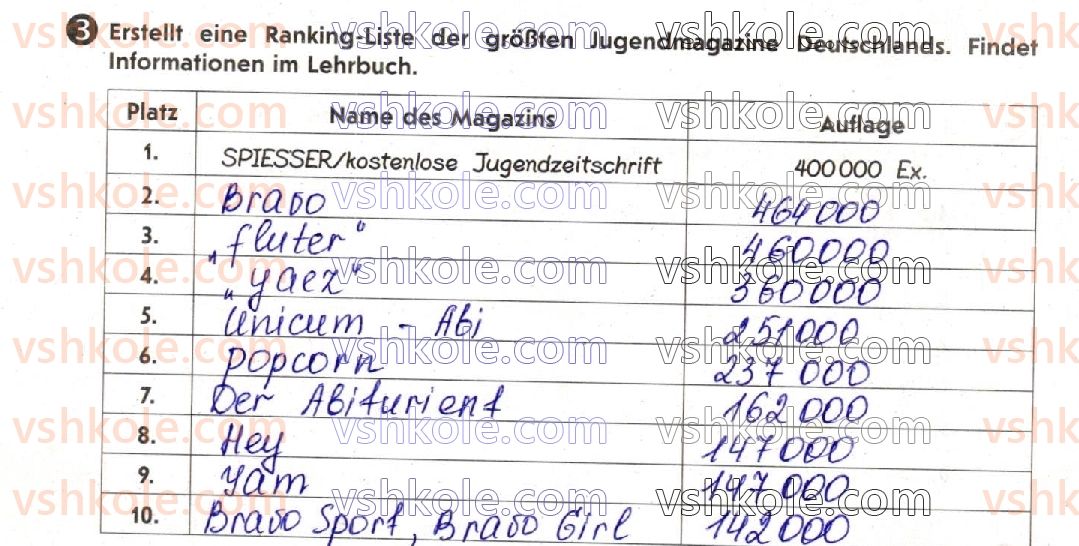 3 Erstellt eine Ranking-Liste der größten Jugendmagazine Deutschlands. Findet
Informationen im Lehrbuch.
Platz Name des Magazins Auflage
1. SPIESSER/kostenlose Jugendzeitschrift 400 000 Ex.
2. Bravo 464 000
3. „fluter“ 460 000
4. „yaez“ 360 000
5. Unicum - Abi 251 000
6. popcorn 237 000
7. Der Abiturient 162 000
8. Hey 147 000
9. Yam 147 000
10. Bravo Sport, Bravo Girl 142 000
vshkole.com